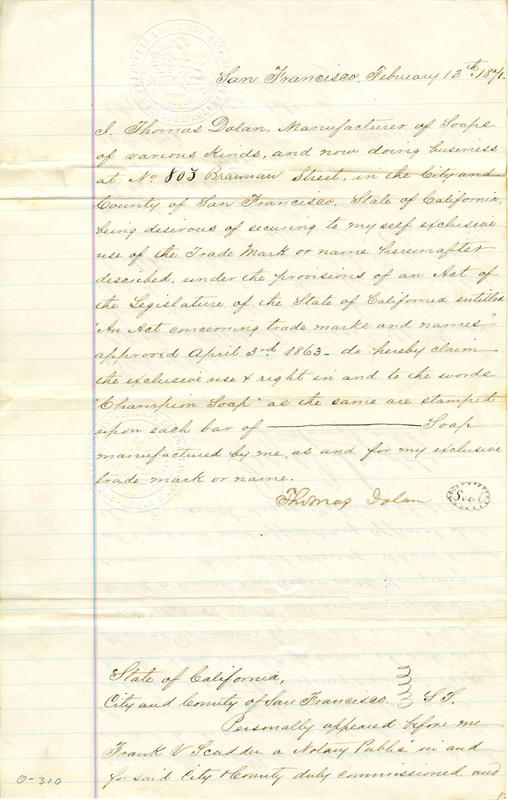 San Francisco, February 13th. 1871.
I, Thomas Dolan, Manufacturer of Soaps
of various kinds, and now doing business
at No 803 Brannan Street, in the City and
County of San Francisco, State of California,
being desirous of securing to my self exclusive
use of the Trade Mark or name hereinafter
described, under the provisions of an Act of
the Legislature of the State of California entitled
"An Act concerning trade marks and names"
approved April 3rd 1863 - do hereby claim
the exclusive use & right in and to the words
"Champion Soap" as the same are stamped
upon each bar of ——————— Soap
manufactured by me, as and for my exclusive
trade mark or name.
Thomas Dolan (Seal)
State of California,
City and County of San Francisco. } S.S.
Personally appeared before me
Frank V Scudder a Notary Public in and
for said City & County duly commissioned and
0-310